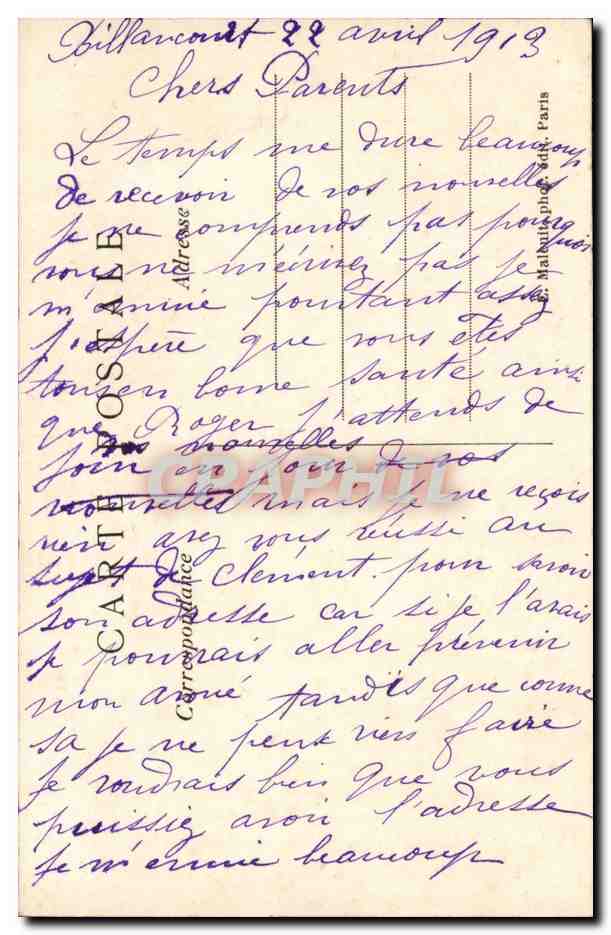 Billancourt 22 avril 1913
Chers Parents
Le temps me dure beaucoup
de recevoir de vos nouvelles
je ne comprends pas pourquoi
vous ne m'écrivez pas je
m'ennuie pourtant assez
j'espère que vous êtes
tous en bonne santé ainsi
que Roger j'attends de
vos nouvelles
jour en jour de vos
nouvelles mais je ne reçois
rien avez vous réussi au
sujet de Clément pour savoir
son adresse car si je l'avais
je pourrais aller prévenir
mon avoué tandis que comme
sa je ne peux rien faire
je voudrais bien que vous
puissiez avoir l'adresse
je m'ennuie beaucoup
CARTE POSTALE
Correspondance
Adresse
E. Malcuit, phot. édit. Paris
CPAPHIL